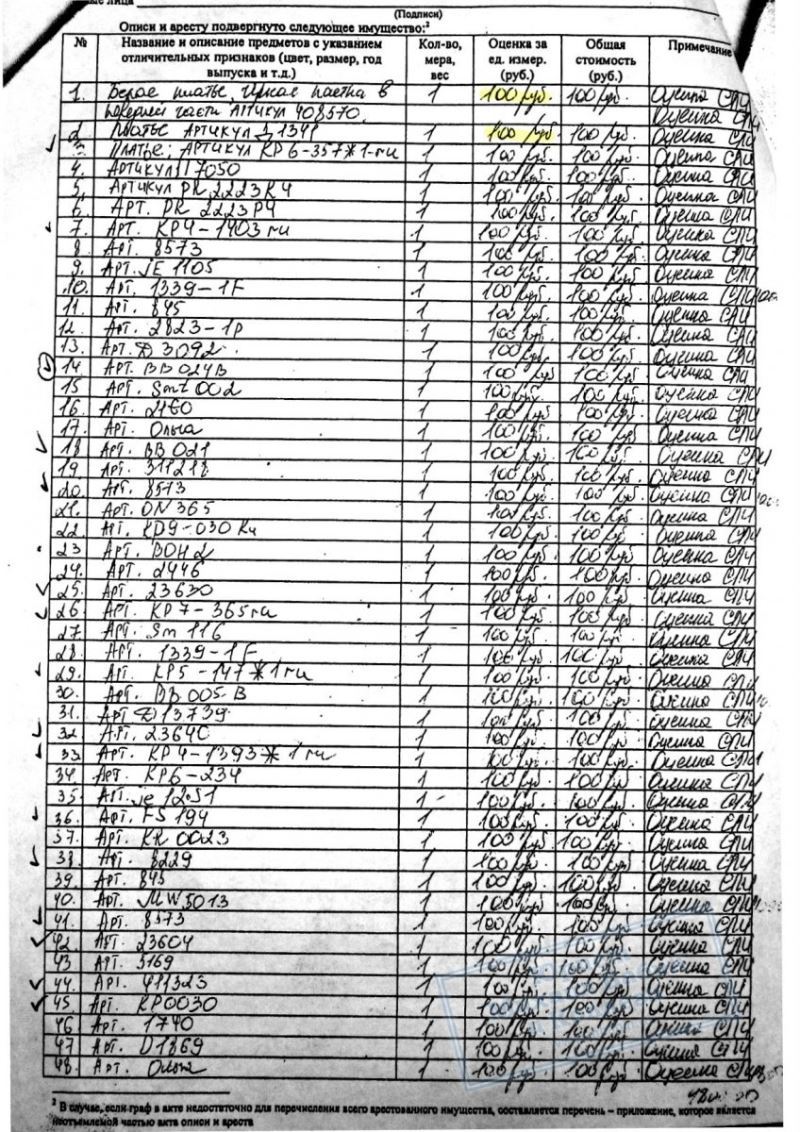 (Подписи)
Описи и аресту подвергнуто следующее имущество:²
№ Название и описание предметов с указанием отличительных признаков (цвет, размер, год выпуска и т.д.) Кол-во, мера, вес Оценка за ед. измер. (руб.) Общая стоимость (руб.) Примечание
1. Белое платье, 1 100 руб. 100 руб. Оценка СПИ
части Артикул 408570. Оценка СПИ
2. Платье Артикул 1 100 руб 100 руб. Оценка СПИ
3. Платье; Артикул KP6-357*1-ru 1 100 руб 100 руб. Оценка СПИ
4. Артикул 117050 1 100 руб. 100 руб. Оценка СПИ
5. Артикул PR 2223R4 1 100 руб. 100 руб. Оценка СПИ
6 Арт. PR 2223P4 1 100 руб. 100 руб. Оценка СПИ
7. Арт. KP4-1403 ru 1 100 руб. 100 руб. Оценка СПИ
8 Арт. 8573 1 100 руб. 100 руб. Оценка СПИ
9. Арт. JE 1105 1 100 руб. 100 руб. Оценка СПИ
10. Арт. 1339-1F 1 100 руб. 100 руб. Оценка СПИ
11. Арт. 845 1 100 руб. 100 руб. Оценка СПИ
12. Арт. 2823-1P 1 100 руб. 100 руб. Оценка СПИ
13. Арт. D3092. 1 100 руб. 100 руб. Оценка СПИ
14 Арт. BB024B 1 100 руб 100 руб. Оценка СПИ
15 Арт. Smt 002 1 100 руб. 100 руб. Оценка СПИ
16. Арт. 2460 1 100 руб. 100 руб. Оценка СПИ
17. Арт. Ольга 1 100 руб. 100 руб. Оценка СПИ
18 Арт. BB 021 1 100 руб. 100 руб. Оценка СПИ
19 Арт. 311218 1 100 руб. 100 руб. Оценка СПИ
20. Арт. 8573 1 100 руб. 100 руб. Оценка СПИ
21. Арт. ON 365 1 100 руб. 100 руб. Оценка СПИ
22. Арт. KD9-030 Ru 1 100 руб. 100 руб. Оценка СПИ
23 Арт. BOH2 1 100 руб. 100 руб. Оценка СПИ
24. Арт. 2446 1 100 руб. 100 руб. Оценка СПИ
25. Арт. 23630 1 100 руб. 100 руб. Оценка СПИ
26. Арт. KP7-365ru 1 100 руб. 100 руб. Оценка СПИ
27. Арт. Sm 116 1 100 руб. 100 руб. Оценка СПИ
28. Арт. 1339-1F 1 100 руб. 100 руб. Оценка СПИ
29. Арт. KP5-147*1ru 1 100 руб. 100 руб. Оценка СПИ
30. Арт. BB 005-B 1 100 руб. 100 руб. Оценка СПИ
31. Арт D13739 1 100 руб. 100 руб. Оценка СПИ
32 Арт. 23640 1 100 руб. 100 руб. Оценка СПИ
33. Арт. KP4-1393*1ru 1 100 руб. 100 руб. Оценка СПИ
34. Арт. KP6-234 1 100 руб. 100 руб. Оценка СПИ
35. Арт. je 1251 1 100 руб. 100 руб. Оценка СПИ
36. Арт. FS 194 1 100 руб. 100 руб. Оценка СПИ
37. Арт. KR 0023 1 100 руб. 100 руб. Оценка СПИ
38. Арт. 8229 1 100 руб. 100 руб. Оценка СПИ
39. Арт. 845 1 100 руб. 100 руб. Оценка СПИ
40. Арт. MW5013 1 100 руб. 100 руб. Оценка СПИ
41. Арт. 8573 1 100 руб. 100 руб. Оценка СПИ
42. Арт. 23604 1 100 руб. 100 руб. Оценка СПИ
43 Арт. 5169 1 100 руб. 100 руб. Оценка СПИ
44. Арт. 411323 1 100 руб. 100 руб. Оценка СПИ
45. Арт. KP0030 1 100 руб. 100 руб. Оценка СПИ
46 Арт. 1740 1 100 руб. 100 руб. Оценка СПИ
47 Арт. D1869 1 100 руб. 100 руб. Оценка СПИ
48. Арт. Ольга 1 100 руб. 100 руб. Оценка СПИ
² В случае, если граф в акте недостаточно для перечисления всего арестованного имущества, составляется перечень – приложение, которое является
неотъемлемой частью акта описи и ареста